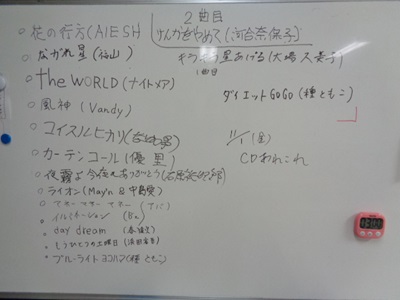 2曲目
花の行方(AIESH
けんかをやめて(河合奈保子)
ながれ星(
キラキラ星あげる(大崎
1曲目
the WORLD(ナイトメア)
ダイエットGOGO(種ともこ)
風神(Vandy)
コイスルヒカリ(
11/1(金)
カーテンコール(優里)
CDあれこれ
今夜もありがとう(
ライオン(May'n & 中島愛)
マネー マネー マネー(アバ)
イルミネーション(
day dream(
もうひとつの土曜日(浜田省吾)
ブルーライトヨコハマ(種ともこ)